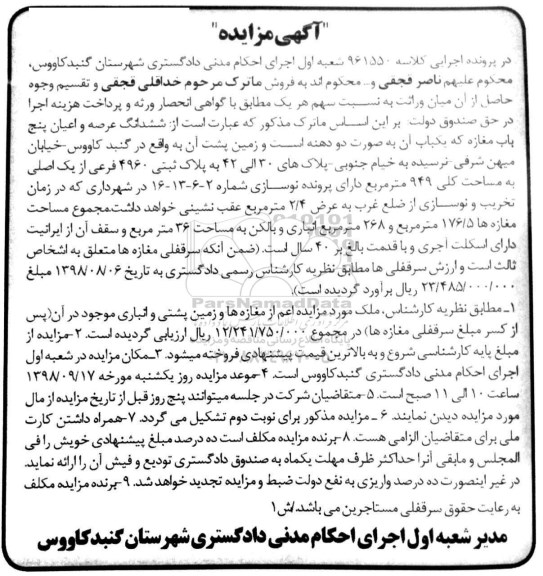 "آگهی مزایده"
در پرونده اجرایی کلاسه ۹۶۱۵۵۰ شعبه اول اجرای احکام مدنی دادگستری شهرستان گنبدکاووس،
محکوم علیهم ناصر قجقی و... محکوم اند به فروش ماترک مرحوم خداقلی قجقی و تقسیم وجوه
حاصل از آن میان وراثت به نسبت سهم هر یک مطابق با گواهی انحصار ورثه و پرداخت هزینه اجرا
در حق صندوق دولت. بر این اساس ماترک مذکور که عبارت است از: ششدانگ عرصه و اعیان پنج
باب مغازه که یکباب آن به صورت دو دهنه است و زمین پشت آن به واقع در گنبد کاووس-خیابان
میهن شرقی-نرسیده به خیام جنوبی-پلاک های ۳۰ الی ۴۲ به پلاک ثبتی ۴۹۶۰ فرعی از یک اصلی
به مساحت کلی ۹۴۹ مترمربع دارای پرونده نوسازی شماره ۲-۶-۱۳-۱۶ در شهرداری که در زمان
تخریب و نوسازی از ضلع غرب به عرض ۲/۴ مترمربع عقب نشینی خواهد داشت.مجموع مساحت
مغازه ها ۱۷۶/۵ مترمربع و ۲۶۸ مترمربع انباری و بالکن به مساحت ۳۶ متر مربع و سقف آن از ایرانیت
دارای اسکلت آجری و با قدمت بالغ بر ۴۰ سال است. (ضمن آنکه سرقفلی مغازه ها متعلق به اشخاص
ثالث است و ارزش سرقفلی ها مطابق نظریه کارشناس رسمی دادگستری به تاریخ ۱۳۹۸/۰۸/۰۶ مبلغ
۲۳/۴۸۵/۰۰۰/۰۰۰ ریال برآورد گردیده است).
۱- مطابق نظریه کارشناس، ملک مورد مزایده اعم از مغازه ها و زمین پشتی و انباری موجود در آن(پس
از کسر مبلغ سرقفلی مغازه ها) در مجموع ۱۲/۲۴۱/۷۵۰/۰۰۰ ریال ارزیابی گردیده است. ۲-مزایده از
مبلغ پایه کارشناسی شروع و به بالاترین قیمت پیشنهادی فروخته میشود. ۳-مکان مزایده در شعبه اول
اجرای احکام مدنی دادگستری گنبدکاووس است. ۴-موعد مزایده روز یکشنبه مورخه ۱۳۹۸/۰۹/۱۷
ساعت ۱۰ الی ۱۱ صبح است. ۵-متقاضیان شرکت در جلسه میتوانند پنج روز قبل از تاریخ مزایده از مال
مورد مزایده دیدن نمایند. ۶- مزایده مذکور برای نوبت دوم تشکیل می گردد. ۷-همراه داشتن کارت
ملی برای متقاضیان الزامی هست. ۸-برنده مزایده مکلف است ده درصد مبلغ پیشنهادی خویش را فی
المجلس و مابقی آنرا حداکثر ظرف مهلت یکماه به صندوق دادگستری تودیع و فیش آن را ارائه نماید.
در غیر اینصورت ده درصد واریزی به نفع دولت ضبط و مزایده تجدید خواهد شد. ۹-برنده مزایده مکلف
به رعایت حقوق سرقفلی مستاجرین می باشد/ش۱
مدیر شعبه اول اجرای احکام مدنی دادگستری شهرستان گنبدکاووس
ParsNamadData